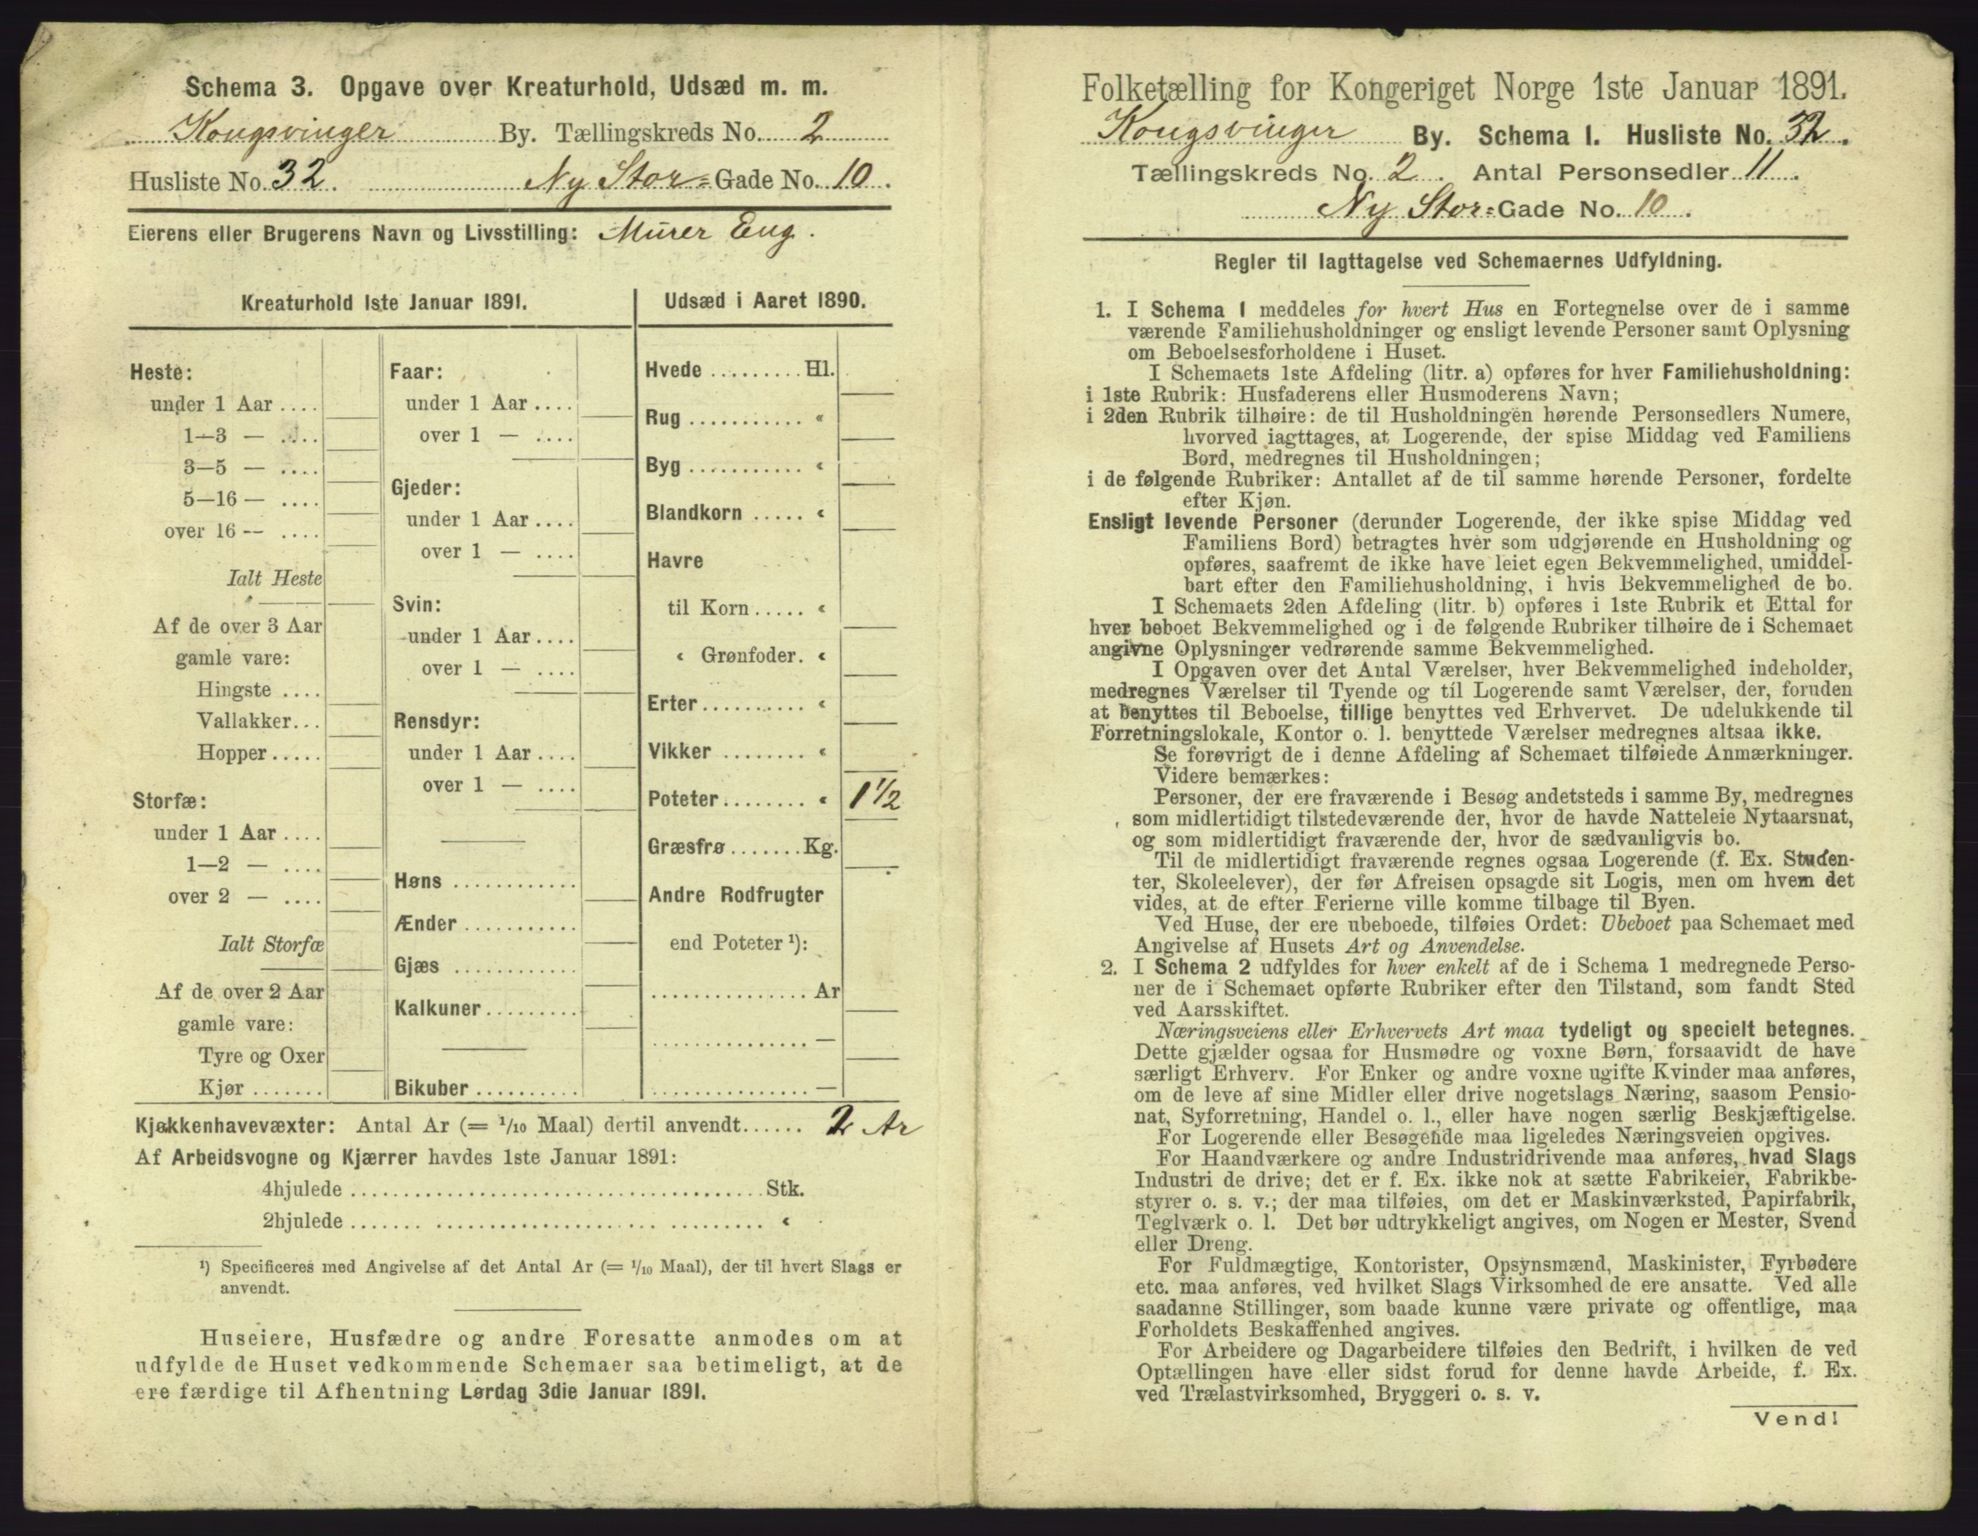 Schema 3. Opgave over Kreaturhold, Udsæd m. m.
Kongsvinger By. Tællingskreds No. 2
Husliste No. 32. Ny Stor= Gade No. 10.
Eierens eller Brugerens Navn og Livsstilling: Murer Eng.
Kreaturhold 1ste Januar 1891.
Heste:
under 1 Aar ....
1—3 — ....
3—5 — ....
5—16 — ....
over 16 — ....
Ialt Heste
Af de over 3 Aar
gamle vare:
Hingste ....
Vallakker...
Hopper.....
Storfæ:
under 1 Aar ....
1—2 — ....
over 2 — ....
Ialt Storfæ
Af de over 2 Aar
gamle vare:
Tyre og Oxer
Kjør .......
Faar:
under 1 Aar ....
over 1 — ....
Gjeder:
under 1 Aar ....
over 1 — ....
Svin:
under 1 Aar ....
over 1 — ....
Rensdyr:
under 1 Aar ....
over 1 — ....
Høns ............
Ænder ...........
Gjæs ............
Kalkuner.........
Bikuber ..........
Udsæd i Aaret 1890.
Hvede ......... Hl.
Rug ........... «
Byg ........... «
Blandkorn ..... «
Havre
til Korn ..... «
« Grønfoder. «
Erter.......... «
Vikker ........ «
Poteter........ « 1 1/2
Græsfrø ....... Kg.
Andre Rodfrugter
end Poteter ¹):
............... Ar
............... —
............... —
Kjøkkenhavevæxter: Antal Ar (= 1/10 Maal) dertil anvendt...... 2 Ar
Af Arbeidsvogne og Kjærrer havdes 1ste Januar 1891:
4hjulede ........................................ Stk.
2hjulede ........................................ «
¹) Specificeres med Angivelse af det Antal Ar (= 1/10 Maal), der til hvert Slags er
anvendt.
Huseiere, Husfædre og andre Foresatte anmodes om at
udfylde de Huset vedkommende Schemaer saa betimeligt, at de
ere færdige til Afhentning Lørdag 3die Januar 1891.
Folketælling for Kongeriget Norge 1ste Januar 1891.
Kongsvinger By. Schema 1. Husliste No. 32.
Tællingskreds No. 2. Antal Personsedler 11.
Ny Stor= Gade No. 10.
Regler til Iagttagelse ved Schemaernes Udfyldning.
1. I Schema 1 meddeles for hvert Hus en Fortegnelse over de i samme
værende Familiehusholdninger og ensligt levende Personer samt Oplysning
om Beboelsesforholdene i Huset.
I Schemaets 1ste Afdeling (litr. a) opføres for hver Familiehusholdning:
i 1ste Rubrik: Husfaderens eller Husmoderens Navn;
i 2den Rubrik tilhøire: de til Husholdningen hørende Personsedlers Numere,
hvorved iagttages, at Logerende, der spise Middag ved Familiens
Bord, medregnes til Husholdningen;
i de følgende Rubriker: Antallet af de til samme hørende Personer, fordelte
efter Kjøn.
Ensligt levende Personer (derunder Logerende, der ikke spise Middag ved
Familiens Bord) betragtes hver som udgjørende en Husholdning og
opføres, saafremt de ikke have leiet egen Bekvemmelighed, umiddel-
bart efter den Familiehusholdning, i hvis Bekvemmelighed de bo.
I Schemaets 2den Afdeling (litr. b) opføres i 1ste Rubrik et Ettal for
hver beboet Bekvemmelighed og i de følgende Rubriker tilhøire de i Schemaet
angivne Oplysninger vedrørende samme Bekvemmelighed.
I Opgaven over det Antal Værelser, hver Bekvemmelighed indeholder,
medregnes Værelser til Tyende og til Logerende samt Værelser, der, foruden
at benyttes til Beboelse, tillige benyttes ved Erhvervet. De udelukkende til
Forretningslokale, Kontor o. l. benyttede Værelser medregnes altsaa ikke.
Se forøvrigt de i denne Afdeling af Schemaet tilføiede Anmærkninger.
Videre bemærkes:
Personer, der ere fraværende i Besøg andetsteds i samme By, medregnes
som midlertidigt tilstedeværende der, hvor de havde Natteleie Nytaarsnat,
og som midlertidigt fraværende der, hvor de sædvanligvis bo.
Til de midlertidigt fraværende regnes ogsaa Logerende (f. Ex. Studen-
ter, Skoleelever), der før Afreisen opsagde sit Logis, men om hvem det
vides, at de efter Ferierne ville komme tilbage til Byen.
Ved Huse, der ere ubeboede, tilføies Ordet: Ubeboet paa Schemaet med
Angivelse af Husets Art og Anvendelse.
2. I Schema 2 udfyldes for hver enkelt af de i Schema 1 medregnede Perso-
ner de i Schemaet opførte Rubriker efter den Tilstand, som fandt Sted
ved Aarsskiftet.
Næringsveiens eller Erhvervets Art maa tydeligt og specielt betegnes.
Dette gjælder ogsaa for Husmødre og voxne Børn, forsaavidt de have
særligt Erhverv. For Enker og andre voxne ugifte Kvinder maa anføres,
om de leve af sine Midler eller drive nogetslags Næring, saasom Pensio-
nat, Syforretning, Handel o. l., eller have nogen særlig Beskjæftigelse.
For Logerende eller Besøgende maa ligeledes Næringsveien opgives.
For Haandværkere og andre Industridrivende maa anføres, hvad Slags
Industri de drive; det er f. Ex. ikke nok at sætte Fabrikeier, Fabrikbe-
styrer o. s. v.; der maa tilføies, om det er Maskinværksted, Papirfabrik,
Teglværk o. l. Det bør udtrykkeligt angives, om Nogen er Mester, Svend
eller Dreng.
For Fuldmægtige, Kontorister, Opsynsmænd, Maskinister, Fyrbødere
etc. maa anføres, ved hvilket Slags Virksomhed de ere ansatte. Ved alle
saadanne Stillinger, som baade kunne være private og offentlige, maa
Forholdets Beskaffenhed angives.
For Arbeidere og Dagarbeidere tilføies den Bedrift, i hvilken de ved
Optællingen have eller sidst forud for denne havde Arbeide, f. Ex.
ved Trælastvirksomhed, Bryggeri o. s. v.
Vend!